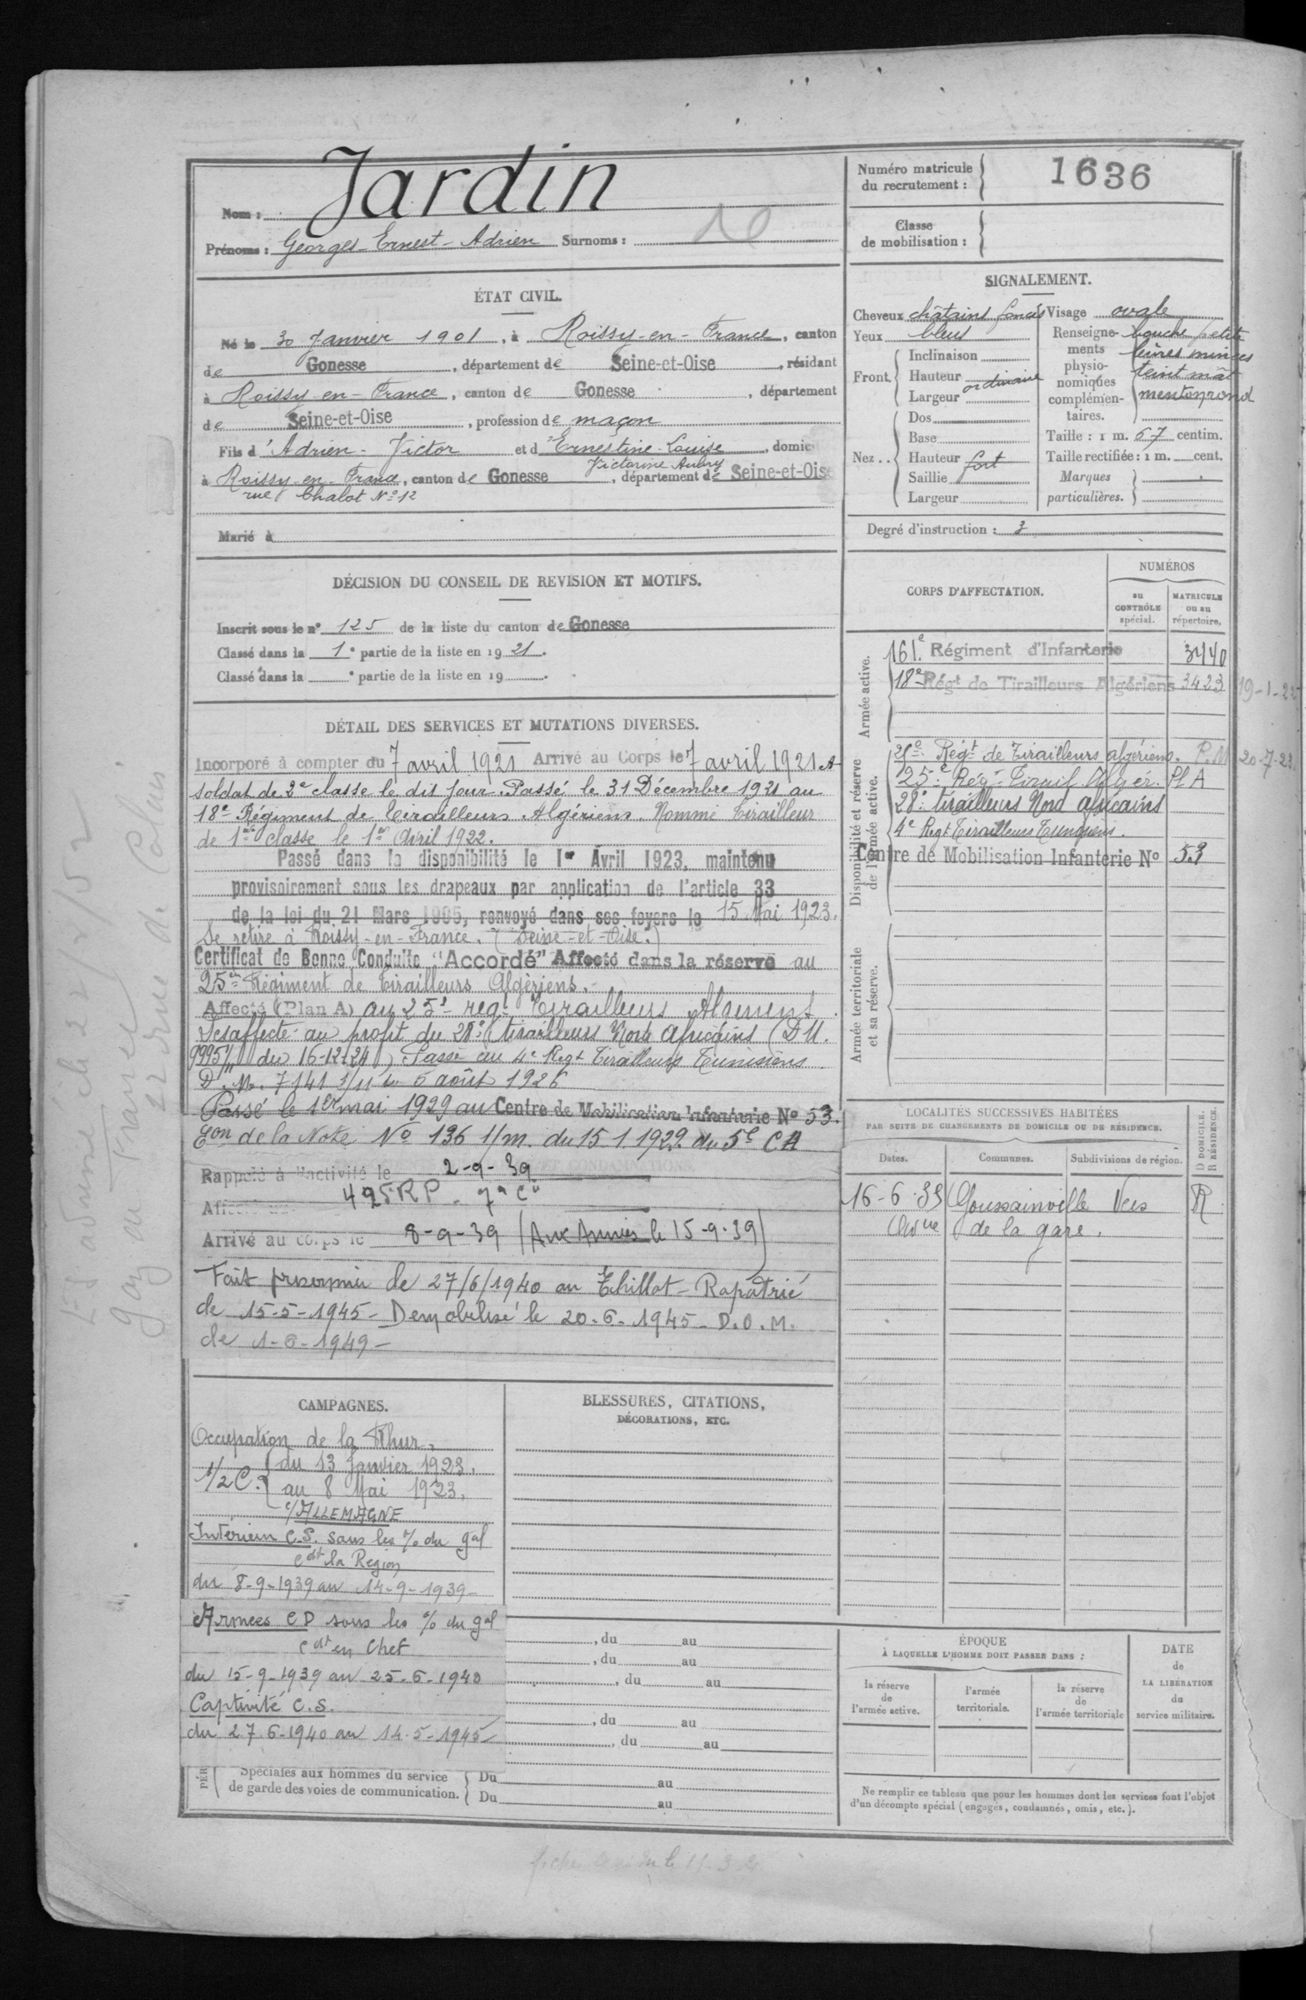 Nom : Jardin
Prénoms : Georges-Ernest-Adrien Surnoms :
ÉTAT CIVIL.
Né le 30 Janvier 1901, à Roissy-en-France, canton
de Gonesse, département de Seine-et-Oise, résidant
à Roissy-en-France, canton de Gonesse, département
de Seine-et-Oise, profession de maçon
Fils d'Adrien-Victor et d'Ernestine-Louise, domic
Victorine Aubry
à Roissy-en-France, canton de Gonesse, département de Seine-et-Oise
rue Chalot N° 12
Marié à
DÉCISION DU CONSEIL DE REVISION ET MOTIFS.
Inscrit sous le n° 125 de la liste du canton de Gonesse
Classé dans la 1e partie de la liste en 1921.
Classé dans la e partie de la liste en 19 .
DÉTAIL DES SERVICES ET MUTATIONS DIVERSES.
Incorporé à compter du 7 avril 1921 Arrivé au Corps le 7 avril 1921 et
soldat de 2e classe le dit jour. Passé le 31 Décembre 1921 au
18e Régiment de Tirailleurs Algériens. Nommé Tirailleur
de 1re classe le 1er Avril 1922.
Passé dans la disponibilité le 1er Avril 1923, maintenu
provisoirement sous les drapeaux par application de l'article 33
de la loi du 21 Mars 1905, renvoyé dans ses foyers le 15 Mai 1923.
Se retire à Roissy-en-France. (Seine-et-Oise.)
Certificat de Bonne Conduite "Accordé" Affecté dans la réserve au
25e Régiment de Tirailleurs Algériens.
Affecté (Plan A) au 25e reg. Tirailleurs
Désaffecté au profit du 28e tirailleurs Nord africains (D.M.
9995 1/11 du 16-12-24) Passé au 4e Regt Tirailleurs Tunisiens
D. M. 7141 1/11 du 5 août 1926
Passé le 1er mai 1929 au Centre de Mobilisation Infanterie N° 53.
Eon de la Note N° 136 1/m. du 15 1 1929 du 5e CA
Rappelé à l'activité le 2-9-39
425 RP. 7e Cie
Arrivé au corps le 8-9-39 (Aux Armées le 15-9-39)
Fait prisonnier le 27/6/1940 au Thillot - Rapatrié
le 15-5-1945 - Demobilisé le 20-6-1945 - D.O.M.
le 1-6-1949 -
CAMPAGNES.
Occupation de la Rhur.
1/2 C. du 13 Janvier 1923.
au 8 Mai 1923.
c/ ALLEMAGNE
Intérieur C.S. sous les % du gal
Cdt la Region
du 8-9-1939 au 14-9-1939
Armées CD sous les % du gal
Cdt en Chef
du 15-9-1939 au 25-6-1940
Captivité C.S.
du 27-6-1940 au 14-5-1945
BLESSURES, CITATIONS,
DÉCORATIONS, ETC.
, du au
, du au
, du au
, du au
, du au
PÉR
Spéciales aux hommes du service
de garde des voies de communication.
Du au
Du au
Numéro matricule
du recrutement : 1636
Classe
de mobilisation :
SIGNALEMENT.
Cheveux châtains foncés Visage ovale
Yeux bleus
Front Inclinaison
Hauteur ordinaire
Largeur
Nez Dos
Base
Hauteur fort
Saillie
Largeur
Renseignements physionomiques complémentaires. bouche petite
lèvres minces
teint mât
menton rond
Taille : 1 m. 67 centim.
Taille rectifiée : 1 m. cent.
Marques
particulières.
Degré d'instruction : 3
CORPS D'AFFECTATION.
NUMÉROS
au CONTRÔLE spécial.
MATRICULE ou au répertoire.
Armée active.
161e Régiment d'Infanterie 3440
18e Régt de Tirailleurs Algériens 3423 19-1-22
Disponibilité et réserve
de l'armée active.
25e Régt de Tirailleurs algériens. P.M 20-7-23
25e Reg. Tirail. Alger. Pl A
28e tirailleurs Nord africains
4e Regt Tirailleurs Tunisiens.
Centre de Mobilisation Infanterie N° 53
Armée territoriale
et sa réserve.
LOCALITÉS SUCCESSIVES HABITÉES
PAR SUITE DE CHANGEMENTS DE DOMICILE OU DE RÉSIDENCE.
D DOMICILE.
R RÉSIDENCE.
Dates. Communes. Subdivisions de région.
16-6-35 Goussainville Vers R
Avue de la gare.
ÉPOQUE
À LAQUELLE L'HOMME DOIT PASSER DANS :
la réserve
de
l'armée active.
l'armée
territoriale.
la réserve
de
l'armée territoriale
DATE
de
LA LIBÉRATION
du
service militaire.
Ne remplir ce tableau que pour les hommes dont les services font l'objet
d'un décompte spécial (engagés, condamnés, omis, etc.).